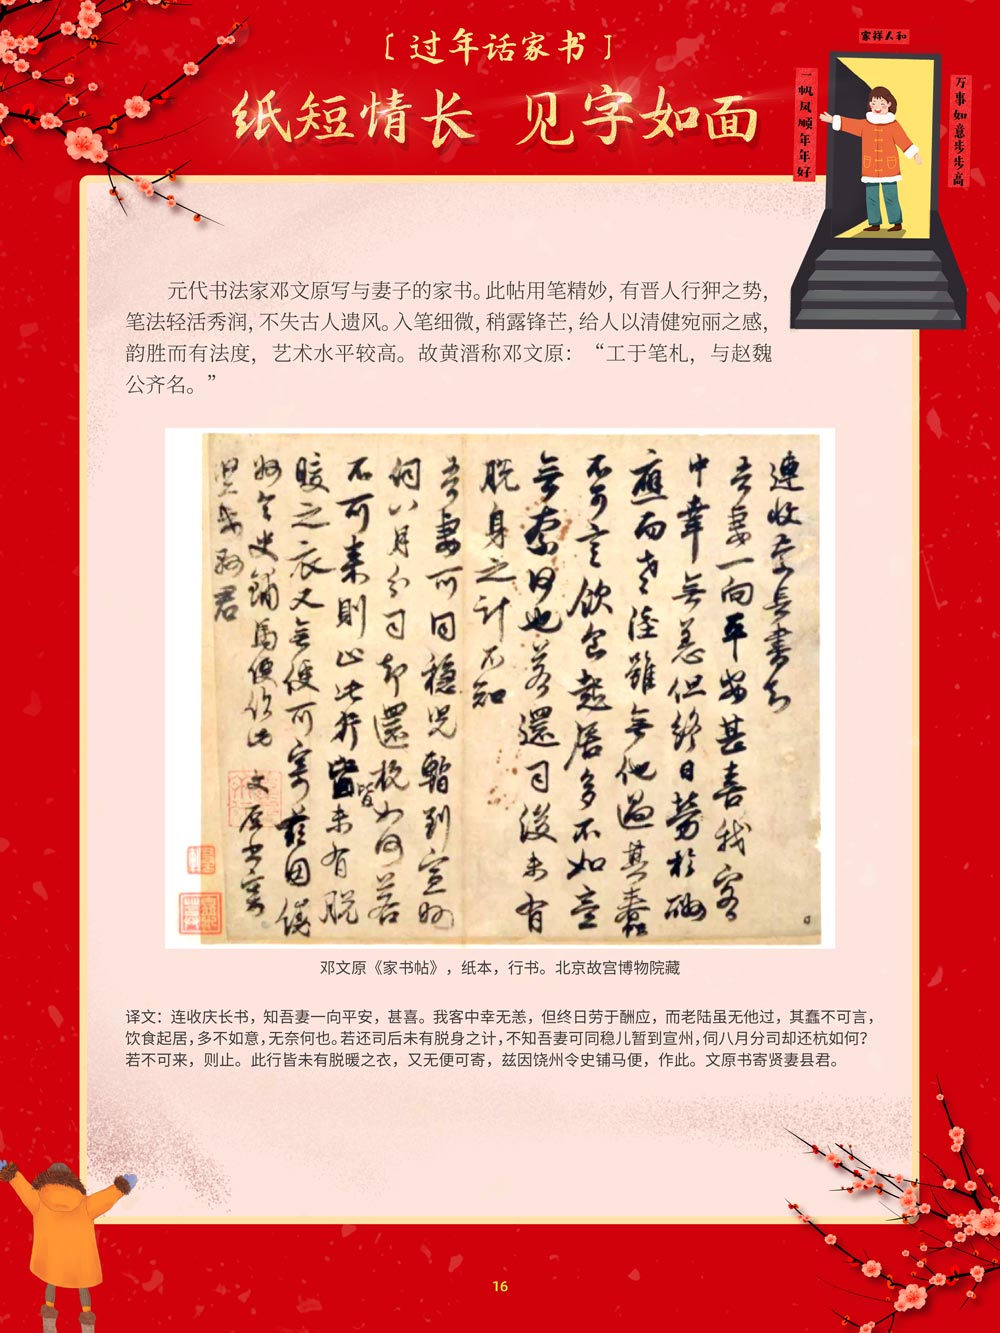 [过年话家书]
纸短情长 见字如面
家祥人和
一帆风顺年年好
万事如意步步高
元代书法家邓文原写与妻子的家书。此帖用笔精妙,有晋人行狎之势,
笔法轻活秀润,不失古人遗风。入笔细微,稍露锋芒,给人以清健宛丽之感,
韵胜而有法度,艺术水平较高。故黄溍称邓文原:“工于笔札,与赵魏
公齐名。”
連收慶長書知
吾妻一向平安甚喜我客
中幸無恙但終日勞於酬
應而老陸雖無他過其蠢
不可言飲食起居多不如意
無奈何也若還司後未有
脱身之計不知
吾妻可同穩児暫到宣州
伺八月分司却還杭如何若
不可来則止此行皆未有脱
暖之衣又無便可寄茲因饒
州令史鋪馬便作此 文原書寄
賢妻縣君
邓文原《家书帖》,纸本,行书。北京故宫博物院藏
译文:连收庆长书,知吾妻一向平安,甚喜。我客中幸无恙,但终日劳于酬应,而老陆虽无他过,其蠢不可言,
饮食起居,多不如意,无奈何也。若还司后未有脱身之计,不知吾妻可同稳儿暂到宣州,伺八月分司却还杭如何?
若不可来,则止。此行皆未有脱暖之衣,又无便可寄,兹因饶州令史铺马便,作此。文原书寄贤妻县君。
16